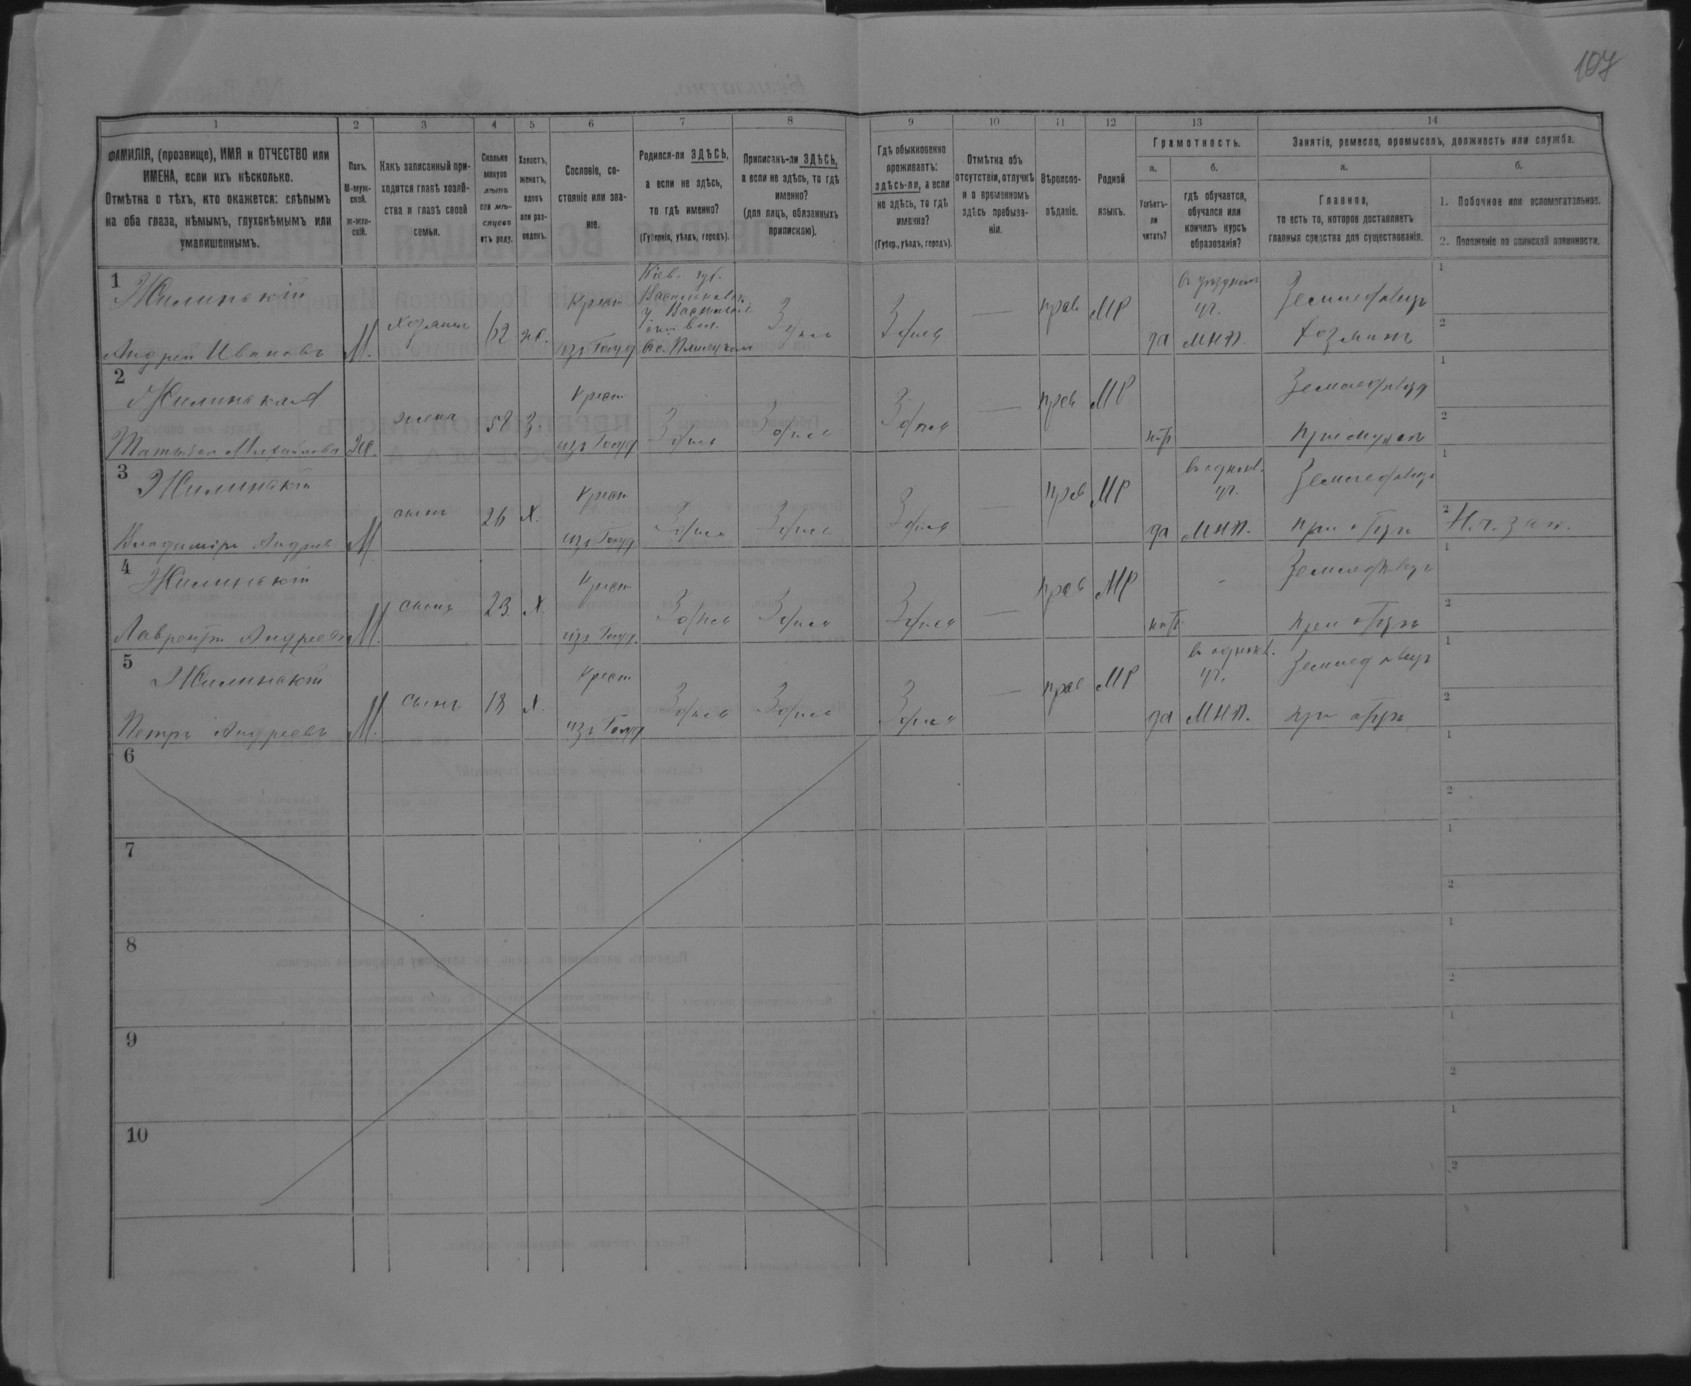 107
1
2
3
4
5
6
7
8
9
10
11
12
13
14
ФАМИЛІЯ, (прозвище), ИМЯ и ОТЧЕСТВО или
ИМЕНА, если ихъ нѣсколько.
Отмѣтка о тѣхъ, кто окажется: слѣпымъ
на оба глаза, нѣмымъ, глухонѣмымъ или
умалишеннымъ.
Полъ.
М-муж-
ской.
Ж-жен-
скій.
Какъ записанный при-
ходится главѣ хозяй-
ства и главѣ своей
семьи.
Сколько
минуло
лѣтъ
или мѣ-
сяцевъ
отъ роду.
Холостъ,
женатъ,
вдовъ
или раз-
веденъ.
Сословіе, со-
стояніе или зва-
ніе.
Родился-ли ЗДѢСЬ,
а если не здѣсь,
то гдѣ именно?
(Губернія, уѣздъ, городъ).
Приписанъ-ли ЗДѢСЬ,
а если не здѣсь, то гдѣ
именно?
(для лицъ, обязанныхъ
припискою).
Гдѣ обыкновенно
проживаетъ:
здѣсь-ли, а если
не здѣсь, то гдѣ
именно?
(Губер., уѣздъ, городъ).
Отмѣтка объ
отсутствіи, отлучкѣ
и о временномъ
здѣсь пребыва-
ніи.
Вѣроиспо-
вѣданіе.
Родной
языкъ.
Грамотность.
а.
Умѣетъ-
ли
читать?
б.
гдѣ обучается,
обучался или
кончилъ курсъ
образованія?
Занятіе, ремесло, промыселъ, должность или служба.
а.
Главное,
то есть то, которое доставляетъ
главныя средства для существованія.
б.
1. Побочное или вспомогательное.
2. Положеніе по воинской повинности.
1
Жилинскій
Андрей Ивановъ
М.
хозяинъ
62
ж.
Крест
Кіев. губ.
Здѣсь
Здѣсь
—
прав
МР
да
уч.
МНП.
Земледѣлецъ
Хозяинъ
1
2
2
Жилинская
Татьяна Михайлова
Ж.
жена
58
З.
Крест
Здѣсь
Здѣсь
Здѣсь
—
прав
МР
нѣтъ
1
2
3
Жилинскій
Владиміръ Андреев
М
сынъ
26
Х.
Крест
Здѣсь
Здѣсь
Здѣсь
—
прав
МР
да
уч.
МНП.
Земледѣлецъ
при отцѣ
1
2
4
Жилинскій
Лаврентій Андреевъ
М.
сынъ
23
Х.
Крест
Здѣсь
Здѣсь
Здѣсь
—
прав
МР
нѣтъ
Земледѣлецъ
при отцѣ
1
2
5
Жилинскій
Петръ Андреевъ
М.
сынъ
18
Х.
Крест
Здѣсь
Здѣсь
Здѣсь
—
прав
МР
да
уч.
МНП.
Земледѣлецъ
при отцѣ
1
2
6
1
2
7
1
2
8
1
2
9
1
2
10
1
2